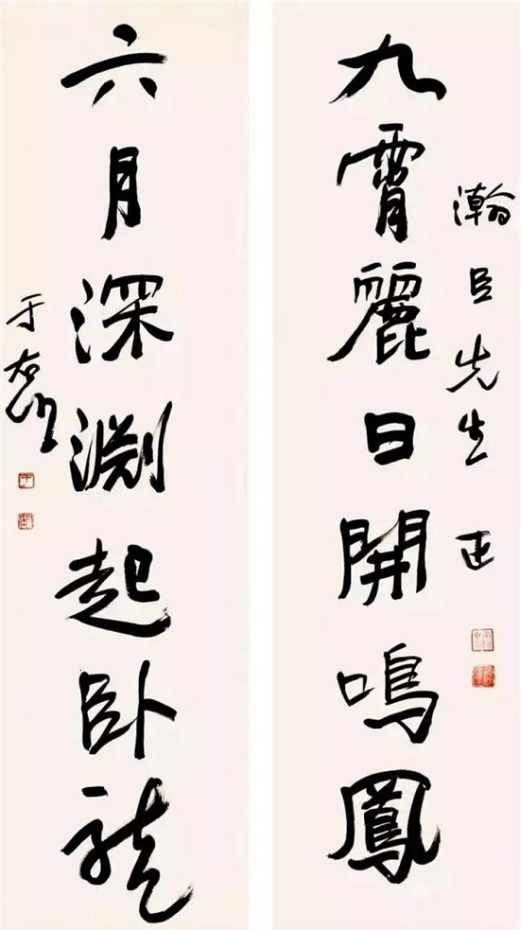 瀚臣先生 正
九霄麗日開鳴鳳
六月深淵起卧龍
于右任